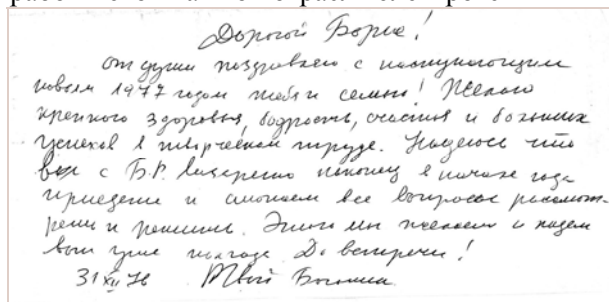 Дорогой Борис!
от души поздравляю с наступающим
новым 1977 годом тебя и семью! Желаю
крепкого здоровья, бодрость, счастия и больших
успехов в творческом труде. Надеюсь что
вы с Б.Р. Лазаренко наконец в начале года
приедете и сможем все вопросы рассмот-
и решить. Этого мы желаем и
уже полгода До встречи!
31 XII 76 Твой